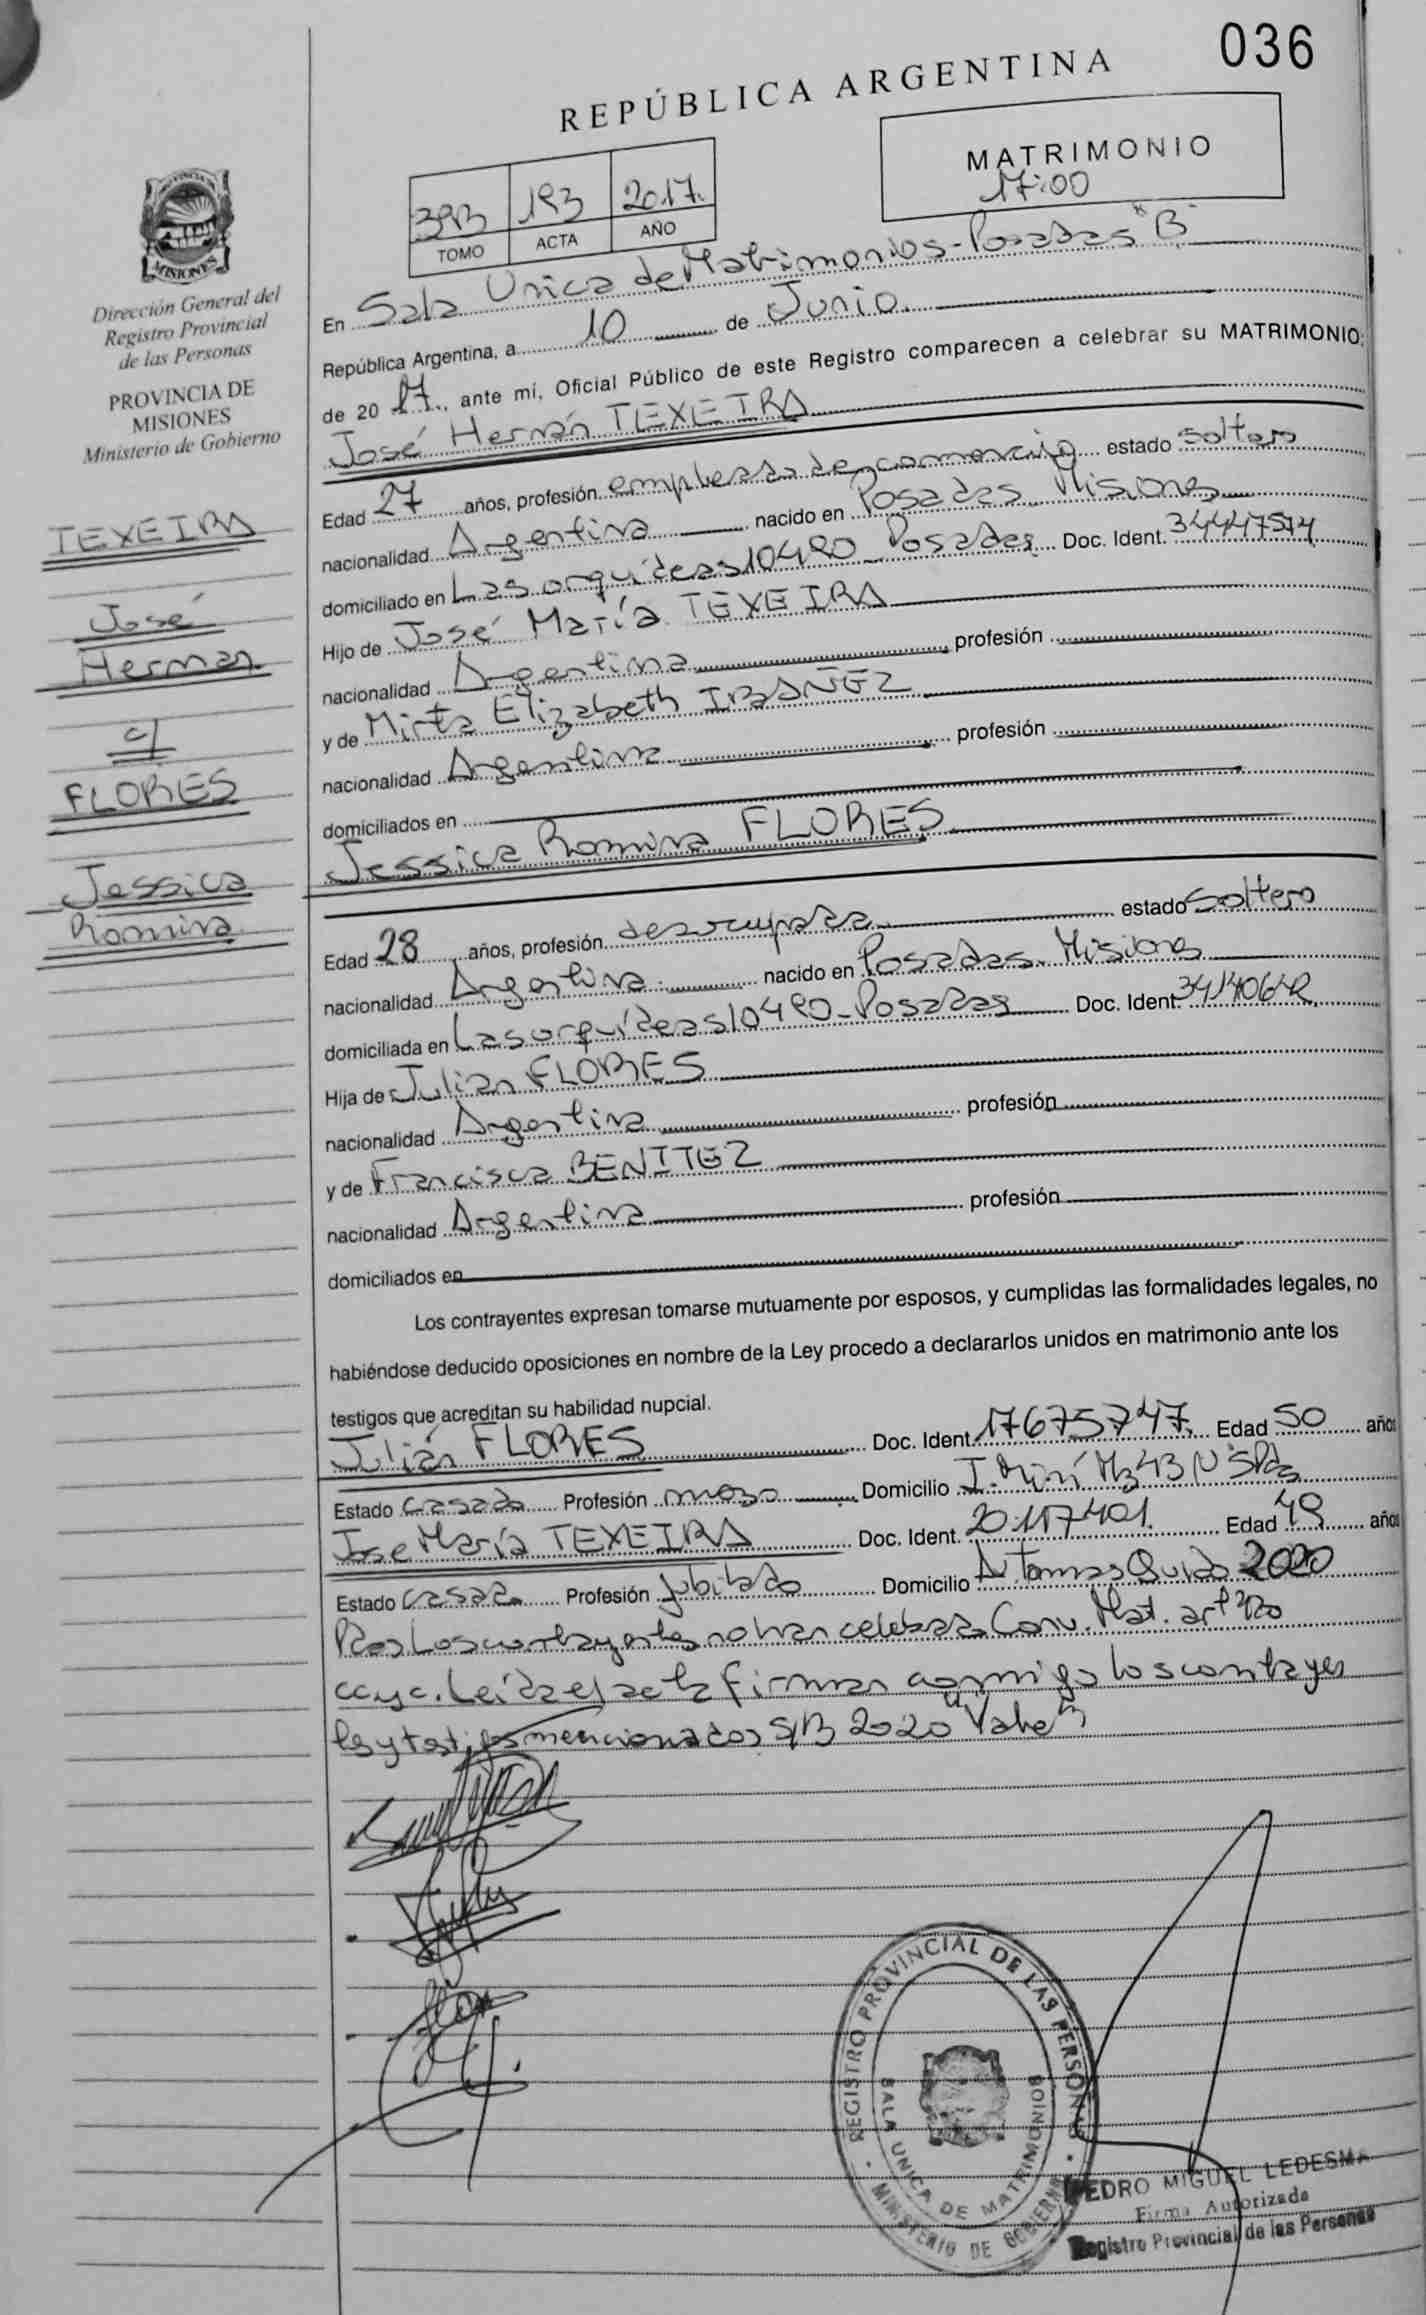 036
REPÚBLICA ARGENTINA
MATRIMONIO
17:00
3PB 193 2017.
TOMO ACTA AÑO
PROVINCIA DE
MISIONES
Dirección General del
Registro Provincial
de las Personas
PROVINCIA DE
MISIONES
Ministerio de Gobierno
TEXEIRA
José
Hernan
c/
FLORES
Jessica
Romina
En Sala Unica de Matrimonios - Posadas "B"
República Argentina, a 10 de Junio
de 20 17, ante mí, Oficial Público de este Registro comparecen a celebrar su MATRIMONIO:
José Hernán TEXEIRA
Edad 27 años, profesión empleado de comercio estado soltero
nacionalidad Argentina nacido en Posadas Misiones
domiciliado en Las orquídeas 10490 Posadas Doc. Ident. 34447574
Hijo de José María TEXEIRA
nacionalidad Argentina profesión
y de Mirta Elizabeth IBAÑEZ
nacionalidad Argentina profesión
domiciliados en
Jessica Romina FLORES
Edad 28 años, profesión desocupada estado soltera
nacionalidad Argentina nacido en Posadas Misiones
domiciliada en Las orquídeas 10490 - Posadas Doc. Ident.
Hija de Julian FLORES
nacionalidad Argentina profesión
y de Francisca BENITEZ
nacionalidad Argentina profesión
domiciliados en
Los contrayentes expresan tomarse mutuamente por esposos, y cumplidas las formalidades legales, no
habiéndose deducido oposiciones en nombre de la Ley procedo a declararlos unidos en matrimonio ante los
testigos que acreditan su habilidad nupcial.
Julián FLORES Doc. Ident. 17675747 Edad 50 años
Estado casado Profesión mozo Domicilio I. Miní Mz 43 N°5 Pdas
Jose María TEXEIRA Doc. Ident. 20.117401. Edad 49 años
Estado casado Profesión Jubilado Domicilio Av Tomas Guido 2020
Pdas Los contrayentes no han celebrado Conv. Mat. art
ccyc. Leída el acta firman conmigo los contrayen
tes y testigos mencionados S/B 2020 "Vale"
REGISTRO PROVINCIAL DE LAS PERSONAS
SALA UNICA DE MATRIMONIO
MINISTERIO DE GOBIERNO
PEDRO MIGUEL LEDESMA
Firma Autorizada
Registro Provincial de las Personas